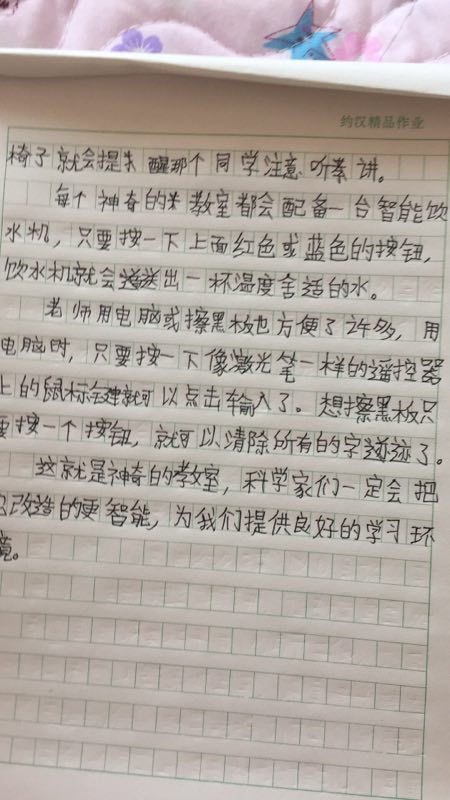 约汉精品作业
椅子就会提醒那个同学注意听讲。
每个神奇的教室都会配备一台智能饮
水机，只要按一下上面红色或蓝色的按钮，
饮水机就会送出一杯温度舍适的水。
老师用电脑或擦黑板也方便了许多，用
电脑时，只要按一下像激光笔一样的遥控器
上的鼠标键就可以点击输入了。想擦黑板只
要按一个按钮，就可以清除所有的字迹了。
这就是神奇的教室，科学家们一定会把
改造的更智能，为我们提供良好的学习环
境。